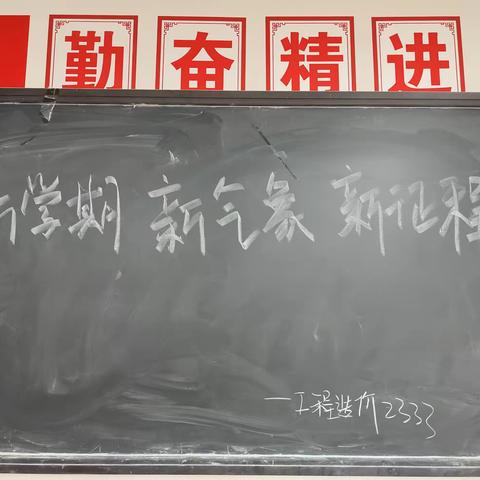 勤 奋 精 进
新学期 新气象 新征程
—工程造价2333